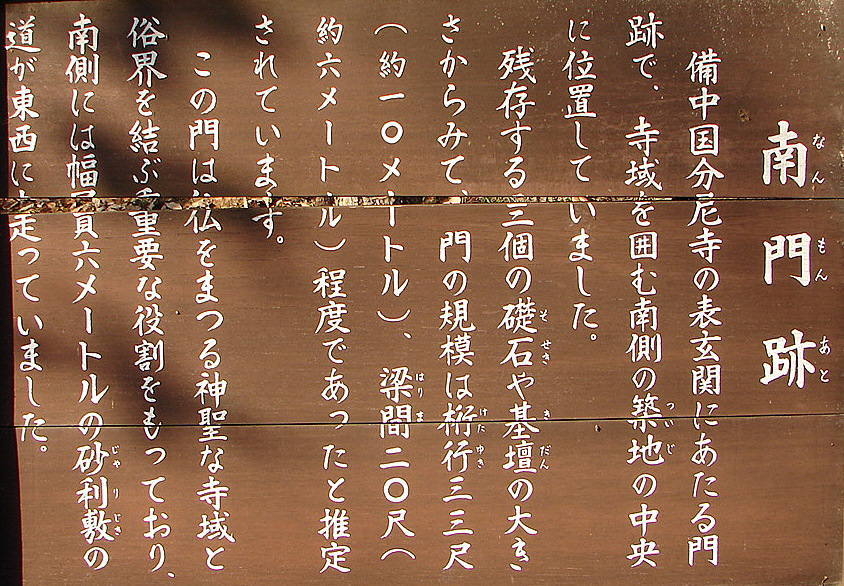 南門跡
備中国分尼寺の表玄関にあたる門
跡で、寺域を囲む南側の築地の中央
に位置していました。
残存する三個の礎石や基壇の大き
さからみて、門の規模は桁行三三尺
(約一〇メートル)、梁間二〇尺(
約六メートル)程度であったと推定
されています。
この門は仏をまつる神聖な寺域と
俗界を結ぶ重要な役割をもっており、
南側には幅員六メートルの砂利敷の
道が東西に走っていました。